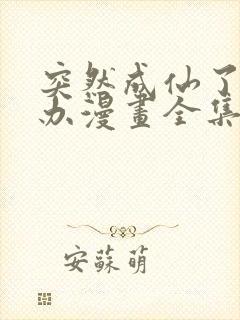 突然成仙了
办漫畫全集
安蘇萌